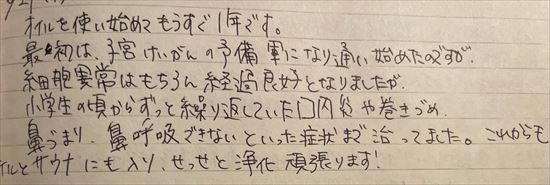 オイルを使い始めて もうすぐ1年です。
最初は、子宮けいがんの予備軍になり通い始めたのですが、
細胞異常はもちろん 経過良好となりましたが、
小学生の頃からずっと繰り返していた口内炎や巻きづめ、
鼻づまり、鼻呼吸できないといった症状まで治ってました。これからも
イルとサウナにも入り、せっせと浄化頑張ります!